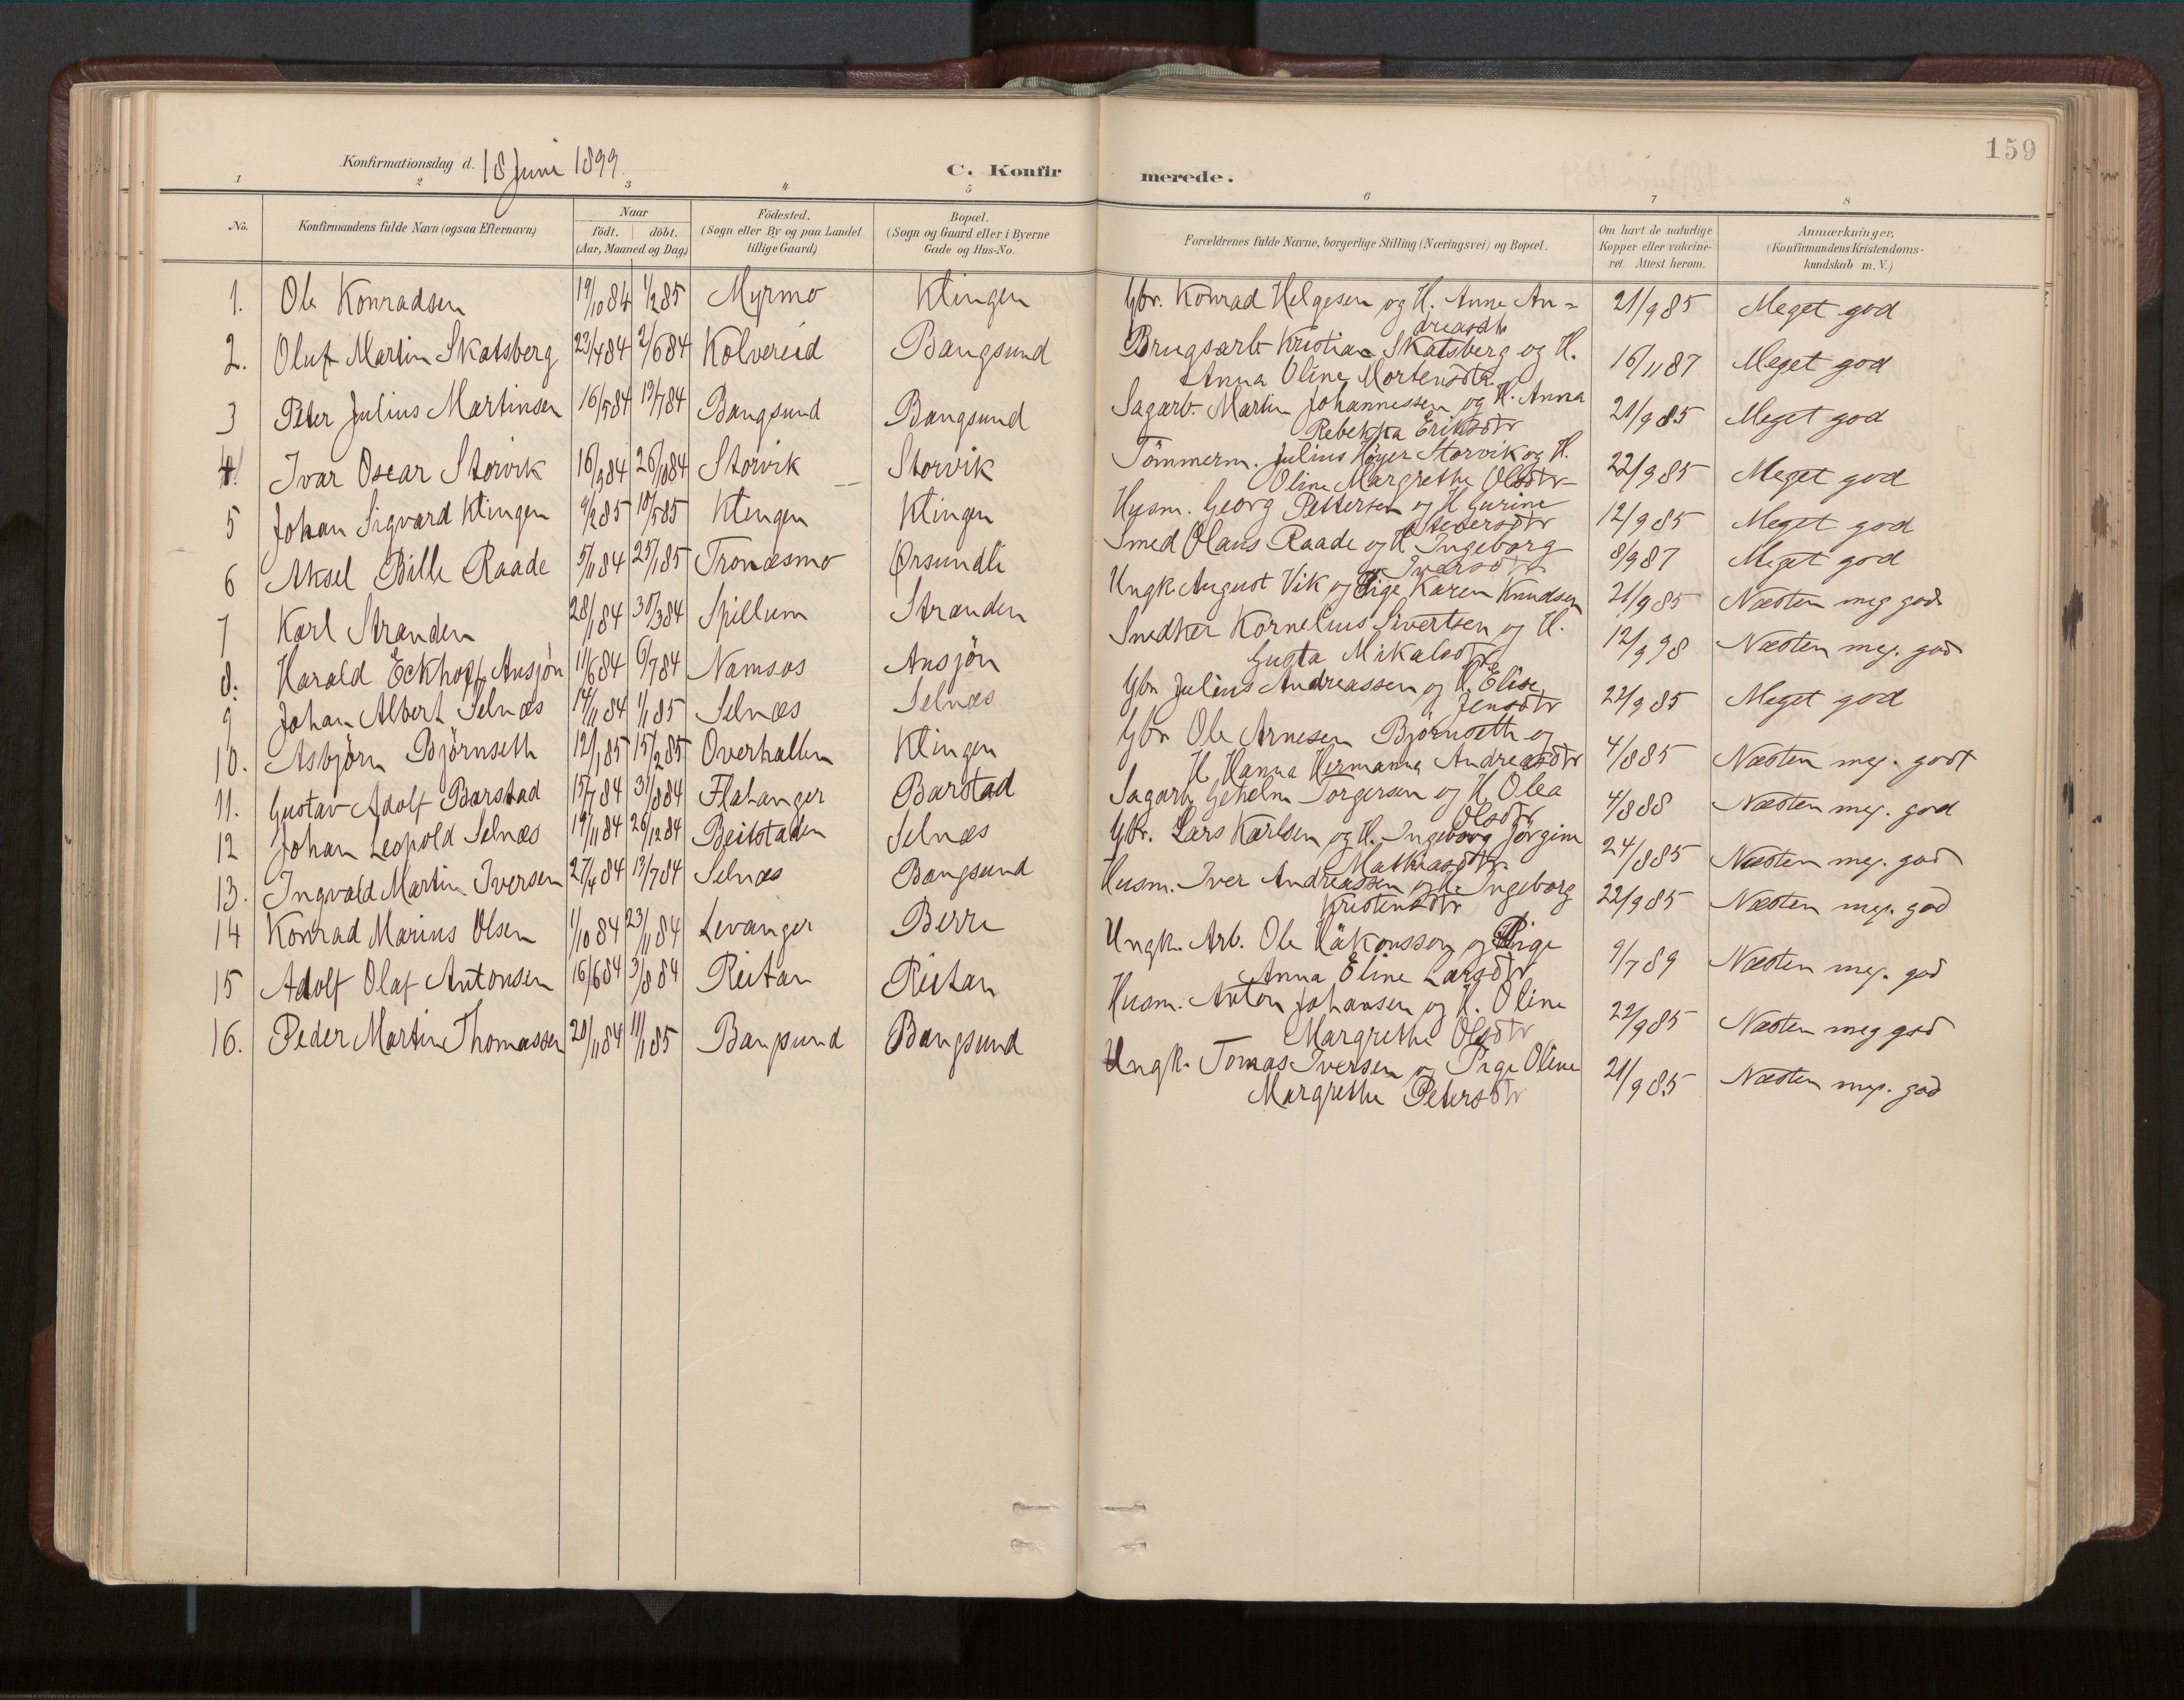 159
Konfirmationsdag d. 18 Juni 1899
C. Konfir merede.
1 2 3 4 5 6 7 8
No. Konfirmandens fulde Navn (ogsaa Efternavn) Naar födt. döbt. (Aar, Maaned og Dag.) Födested. (Sogn eller By og paa Landet tillige Gaard) Bopæl. (Sogn og Gaard eller i Byerne Gade og Hus-No. Forældrenes fulde Navne, borgerlige Stilling (Næringsvei) og Bopæl. Om havt de naturlige Kopper eller vakcineret. Attest herom. Anmærkninger. (Konfirmandens Kristendomskundskab m. V.)
1. Ole Konradsen 19/10 84 1/2 85 Myrmo Klingen Gbr. Konrad Helgesen og H. Anne An= 21/9 85 Meget god
dreasdtr
2. Oluf Martin Skatsberg 23/4 84 2/6 84 Kolvereid Bangsund Brugsarb Kristian Skatsberg og H. 16/11 87 Meget god
Anna Oline Mortensdtr.
3 Peter Julius Martinsen 16/5 84 13/7 84 Bangsund Bangsund Sagarb. Martin Johannessen og H. Anna 21/9 85 Meget god
Rebekka Eriksdtr
4. Ivar Oscar Storvik 16/9 84 26/10 84 Storvik Storvik Tömmerm. Julius Høyer Storvik og H. 22/9 85 Meget god
Oline Margrethe Olsdtr
5 Johan Sigvard Klingen 9/2 85 10/5 85 Klingen Klingen Husm. Georg Pettersen og H Gurine 12/9 85 Meget god
Pedersdtr
6 Aksel Bille Raade 5/11 84 25/1 85 Tronæsmo Ørsundli Smed Olaus Raade og H Ingeborg 8/9 87 Meget god
Iversdtr
7 Karl Stranden 28/1 84 30/3 84 Spillum Stranden Ungk. August Vik og Pige Karen Knudsen 21/9 85 Næsten meg god
8. Harald Eckhoff Ansjön 11/6 84 6/7 84 Namsos Ansjön Snedker Kornelius Sivertsen og H. 12/9 98 Næsten meg. god
Gusta Mikalsdtr
9 Johan Albert Selnæs 14/11 84 1/1 85 Selnæs Selnæs Gbr Julius Andreassen og H. Elise 22/9 85 Meget god
Jensdtr
10. Asbjörn Björnseth 12/1 85 15/2 85 Overhallen Klingen Gbr Ole Arnesen Bjørnseth og 4/8 85 Næsten meg. godt
H Hanna Hermanna Andreasdtr
11. Gustav Adolf Barstad 15/7 84 31/8 84 Flatanger Barstad Sagarb Gehelm Torgersen og H Olea 4/8 88 Næsten meg. god
Olsdtr
12 Johan Leopold Selnæs 19/11 84 26/12 84 Beitstaden Selnæs Gbr. Lars Karlsen og H. Ingeborg Jörgine 24/8 85 Næsten meg. god
Mathiasdtr.
13. Ingvald Martin Iversen 27/4 84 13/7 84 Selnæs Bangsund Husm. Iver Andreassen og H. Ingeborg 22/9 85 Næsten meg. god
Kristensdtr
14 Konrad Marius Olsen 1/10 84 23/11 84 Levanger Berre Ungk. Arb. Ole Håkonsson og Pige 9/7 89 Næsten meg. god
Anna Eline Larsdtr
15 Adolf Olaf Antonsen 16/6 84 3/8 84 Reitan Reitan Husm. Anton Johansen og H. Oline 22/9 85 Næsten meg god
Margrethe Olsdtr
16. Peder Martin Thomassen 20/11 84 11/1 85 Bangsund Bangsund Ungk. Tomas Iversen og Pige Oline 21/9 85 Næsten meg. god
Margrethe Petersdtr